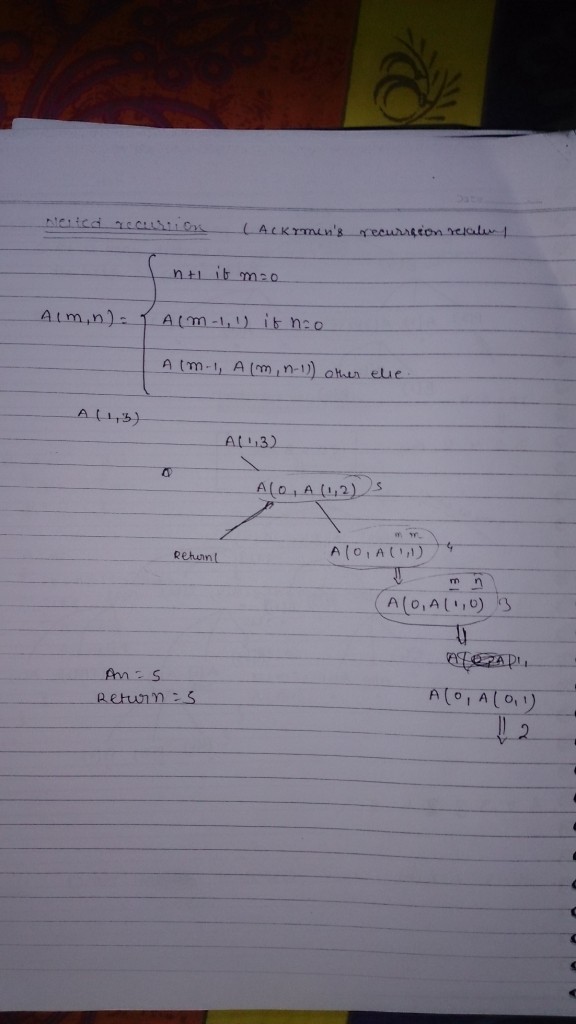 Nested recursion ( Ackrmen's recurrsion relation )
n+1 if m=0
A(m,n) = A(m-1,1) if n=0
A(m-1, A(m,n-1)) other else.
A(1,3)
A(1,3)
A(0, A(1,2) 5
m n
Return( A(0, A(1,1) 4
m n
A(0, A(1,0) 3
An = 5
Return = 5 A(0, A(0,1)
2